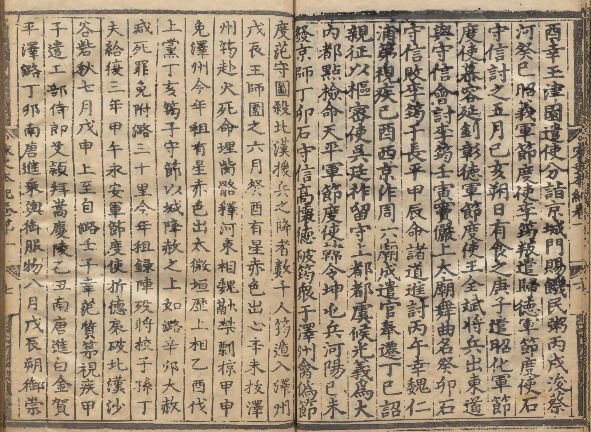 酉幸玉津園遣使分詣京城門賜饑民粥丙戌浚蔡
河癸巳昭義軍節度使李筠叛遣歸德軍節度使石
守信討之五月己亥朔日有食之庚子遣昭化軍節
度使慕容延釗彰德軍節度使王全斌將兵出東道
與守信會討李筠壬寅竇儼上太廟舞曲名癸卯石
守信敗李筠于長平甲辰命諸道進討丙午幸魏仁
浦第視疾己酉西京作周六廟成遣官奉遷丁巳詔
親征以樞密使吳廷祚留守上都都虞候光義為大
內都點檢命天平軍節度使韓令坤屯兵河陽己未
發京師丁卯石守信高懷德破筠衆于澤州禽偽節
度范守圖殺北漢援兵之降者數千人筠遁入澤州
戊辰王師圍之六月癸酉有星赤色出心辛未拔澤
州筠赴火死命埋胔骼釋河東相衛融禁剽掠甲申
免澤州今年租有星赤色出太微垣歷上相乙酉伐
上黨丁亥筠子守節以城降赦之上如潞辛卯大赦
減死罪免附潞三十里今年租錄陣歿將校子孫丁
夫給復三年甲午永安軍節度使折德扆破北漢沙
谷砦秋七月戊申上至自潞壬子幸范質第視疾甲
子遣工部侍郎艾穎拜嵩慶陵乙丑南唐進白金賀
平澤潞丁卯南唐進乘輿御服物八月戊辰朔御崇